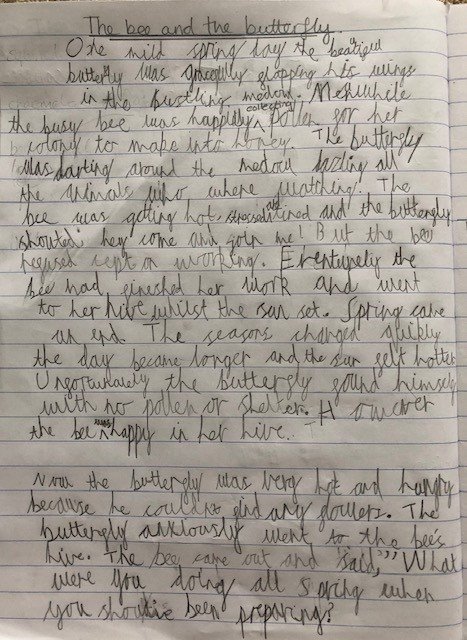 The bee and the butterfly.
One mild spring day the beatiful
butterfly was gracefully flapping his wings
in the bustling medow. Menwhile
the busy bee was happily collecting pollen for her
colony to make into honey. The butterfly
was darting around the medow dazling all
the animals who where watching. The
bee was getting hot stressed and tired and the butterfly
shouted hey come and join me! But the bee
refused kept on working. Eventurely the
bee had fineshed her work and went
to her hive whilst the sun set. Spring came
an end. The seasons changed quickly
the day became longer and the sun felt hotter
Unfortunately the butterfly found himself
with no pollen or shelter. However
the bee was happy in her hive.
Now the butterfly was very hot and hungry
because he couldnt find any flowers. The
butterfly anxiously went to the bee's
hive. The bee came out and said, "What
were you doing all spring when
you should've been preparing?